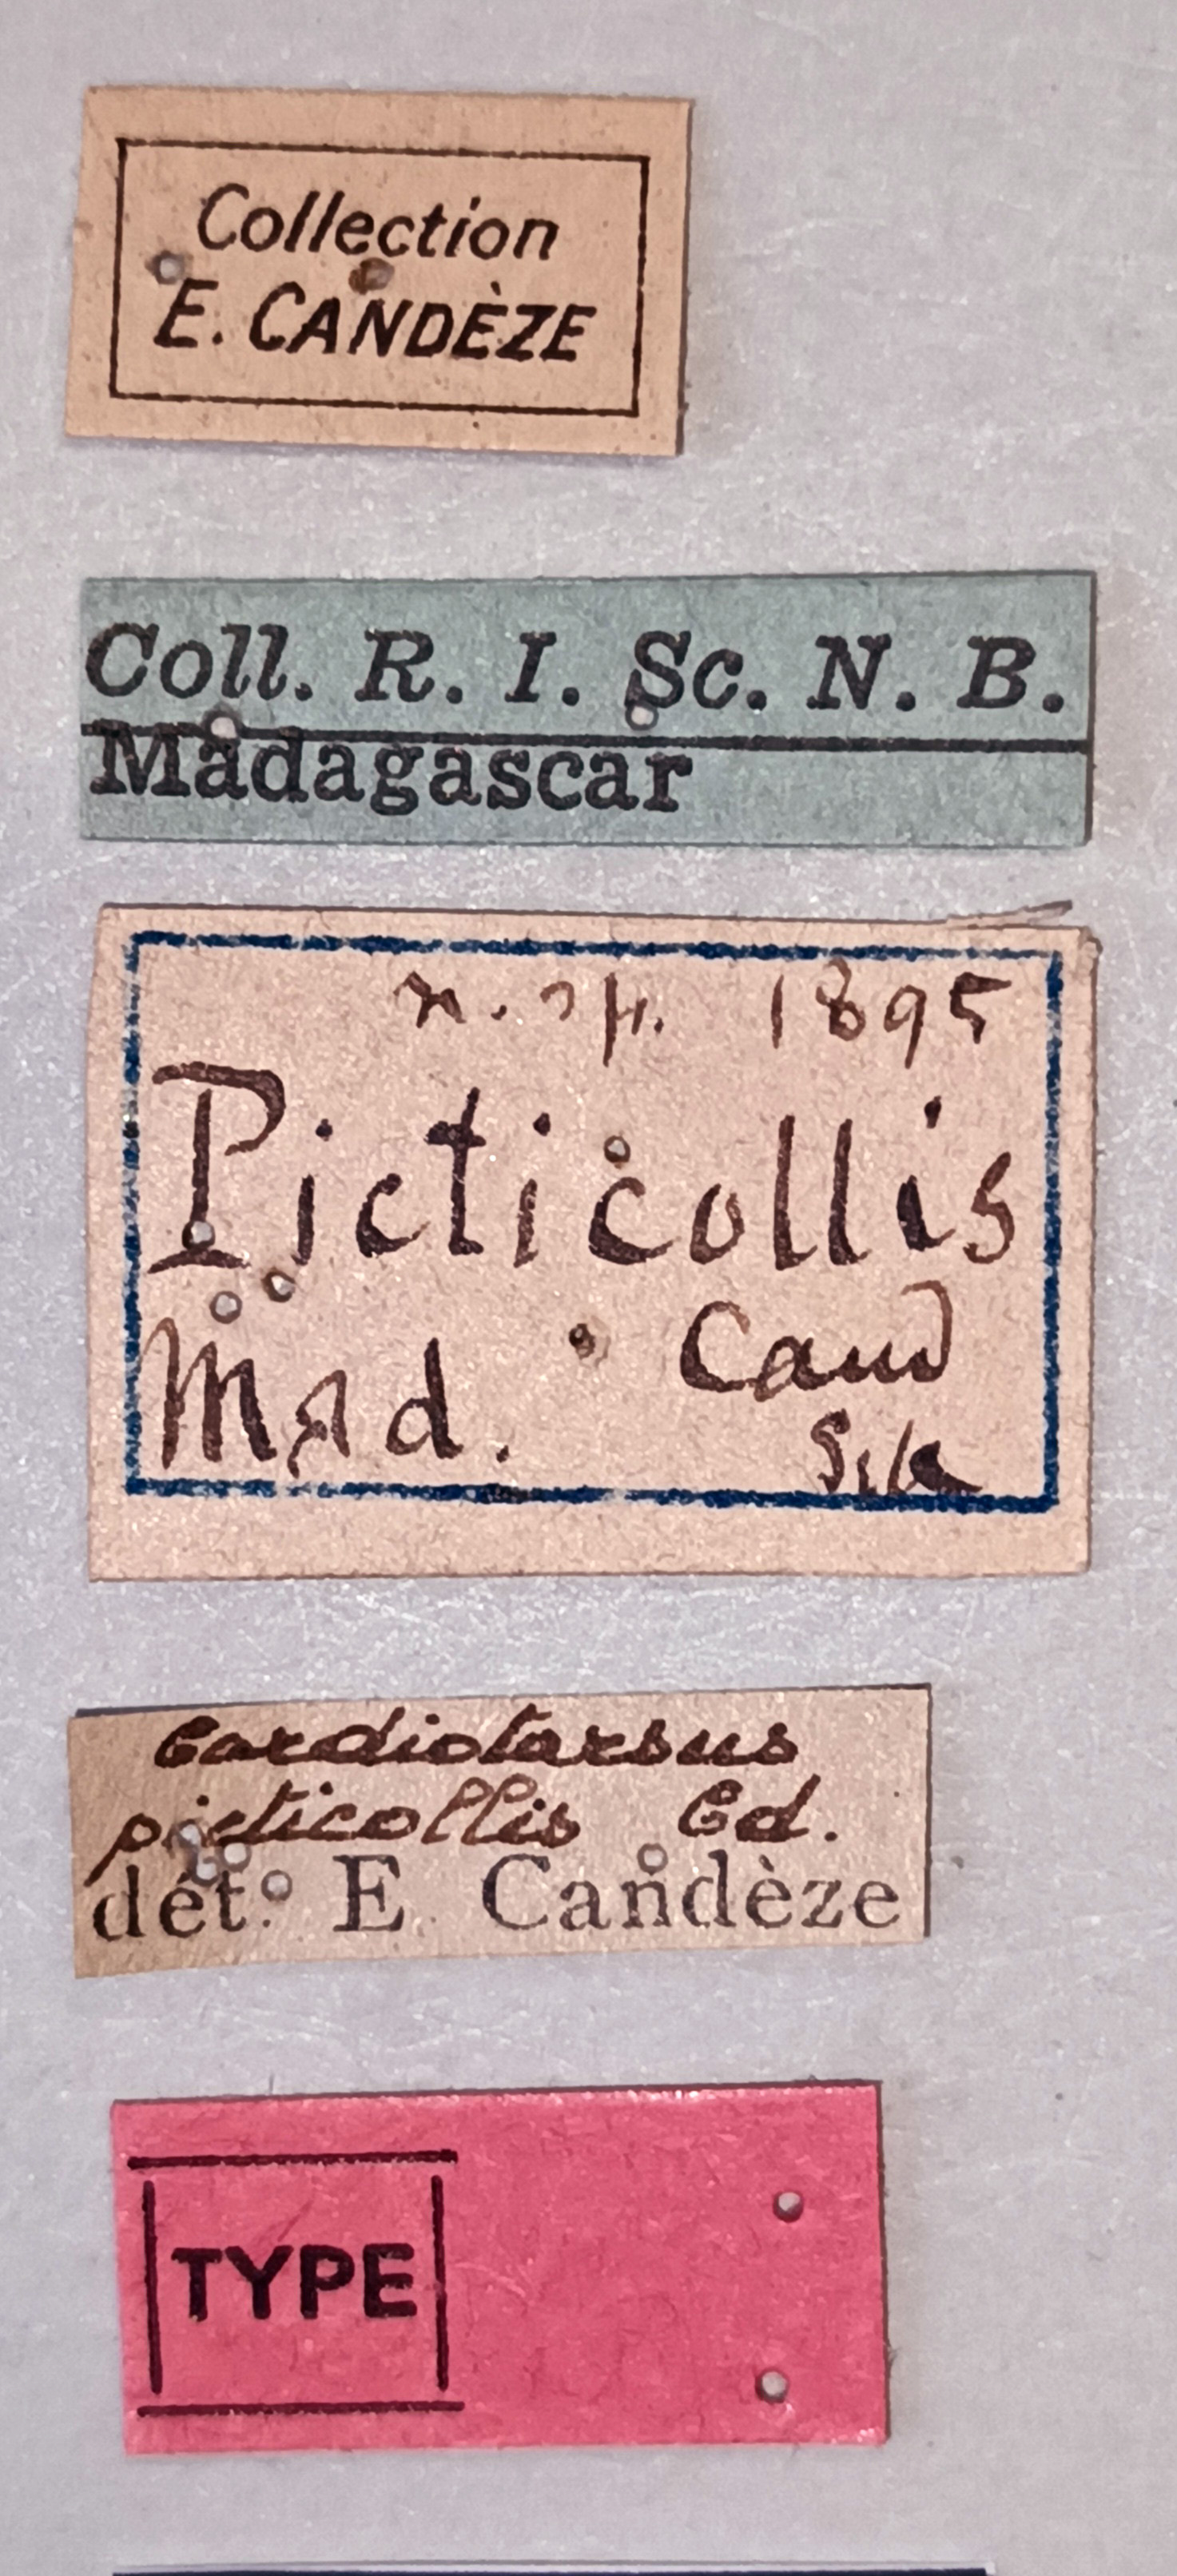 Collection
E. CANDÈZE
Coll. R. I. Sc. N. B.
Madagascar
n. sp. 1895
Picticollis
Mad. Cand
Cardiotarsus
picticollis Cd.
dét. E Candèze
TYPE